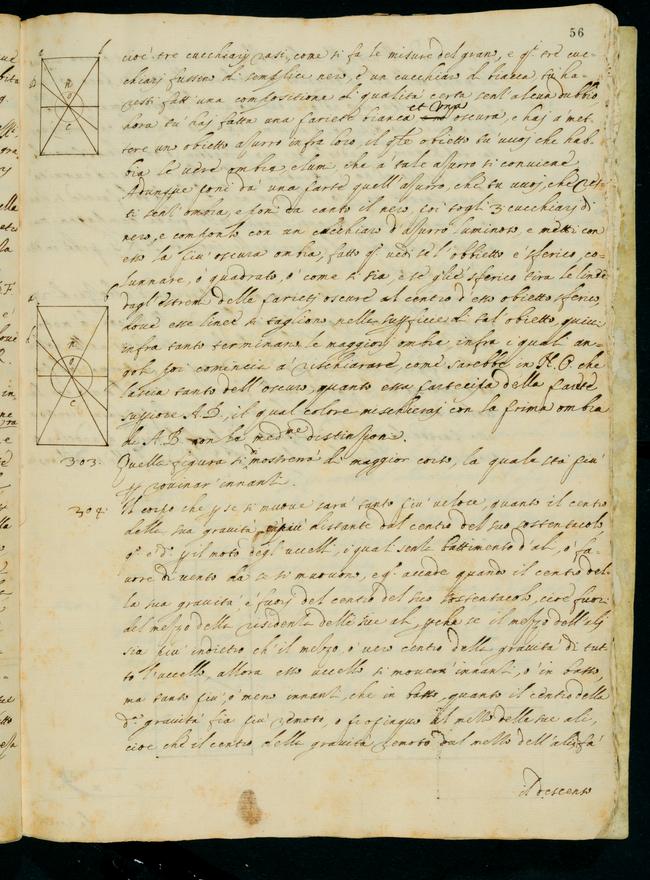 56
cioè tre cucchiarj rasi, come si fa le misure del gran, e q.sti tre cuc-
chiarj fussino di semplice nero, e un cucchiaro di biacca tu ha-
vesti fatt' una compositione di qualità certa senz' alcun dubbio
hora tu haj fatta una pariete bianca et una oscura, e haj a met-
tere un obietto azurro infra loro, il q.le obietto tu vuoj che hab-
bia le vere ombra e lumi che a tale azurro si conviene
Adunque poni da una parte quell' azurro, che tu vuoj, che res-
ti senz' ombra, e pon da canto il nero, poi togli 3 cucchiarj di
nero, e componlo con un cucchiaro d'azurro luminoso, e metti con
esso la più oscura ombra, fatto q.sto vedi se l'obbietto è sferico, co-
lunnare, o quadrato, o come si sia, e se gl'è sferico tira le linee
dagl' estremi delle parieti oscure al centro d'esso obietto sferico,
dove esse linee si tagliono nella superficie di tal obietto quivi
infra tanto terminano le maggiorj ombra, infra i quali an-
goli, poi comincia a rischiarare, come sarebbe in N. O. che
lascia tanto dell' oscuro, quanto esso partecipa della pariete
superiore A. D, il qual colore mischieraj con la prima ombra
de A. B con le med.me distinzione.
303. Quella figura si mostrerrà di maggior corso, la quale sta più
p rovinar' innanzi.
304. Il corpo che p se si muove sarà tanto più veloce, quanto il centro
della sua gravità, è più distante dal centro del suo sostentacolo
q.sto è d.o p il moto degl' uccelli, i quali senza battimento d'ali, ò fa-
vore di vento da se si muovono, e q.sto accade quando il centro del-
la sua gravità è fuorj del centro del suo sostentacolo, cioè fuori
del mezzo della residenza delle sue ali, p che se il mezzo dell' ali
sia più indietro ch' il mezzo, ò vero centro della gravità di tut-
to l'uccello, allora esso uccello si moverà innanzi, ò in basso,
ma tanto più, ò meno innanzi, che in basso, quanto il centro della
d.a gravità fia più remoto, o propinquo al mezzo delle sue ali,
cioè che il centro della gravità remoto dal mezzo dell' ali fa'
il descenso